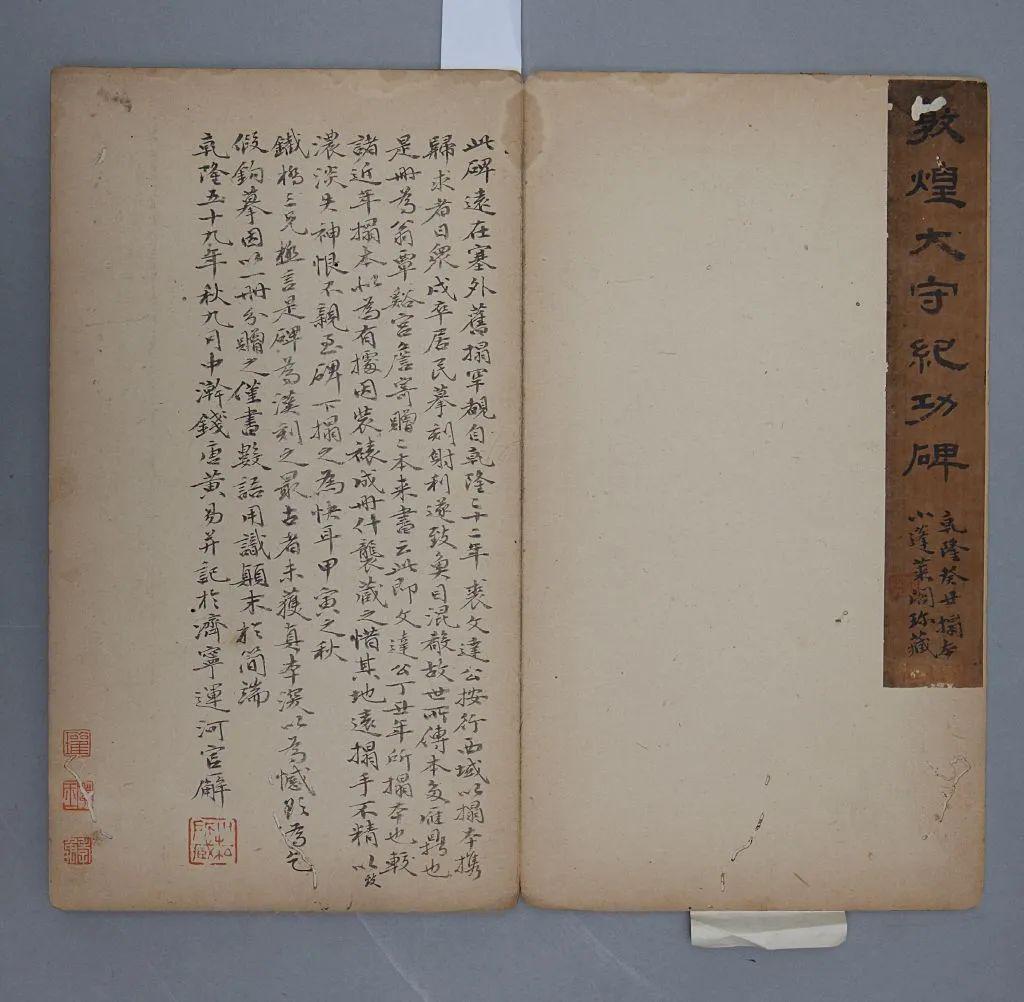 敦煌太守紀功碑
乾隆癸丑搨本
小蓬萊閣珍藏
此碑遠在塞外舊搨罕覯自乾隆二十二年裘文達公按行西域以搨本攜
歸求者日眾戍卒居民摹刻射利遂致魚目混殽故世所傳本多雁鼎也
是冊為翁覃谿宮詹寄贈二本來書云此即文達公丁丑年所搨本也較
諸近年搨本似為有據因裝裱成冊什襲藏之惜其地遠搨手不精以致
濃淡失神恨不親至碑下搨之為快耳甲寅之秋
鐵橋三兄極言是碑為漢刻之最古者未獲真本深以為憾欲為乞
假鉤摹因以一冊分贈之僅書數語用識顛末於簡端
乾隆五十九年秋九月中澣錢唐黃易并記於濟寧運河官廨